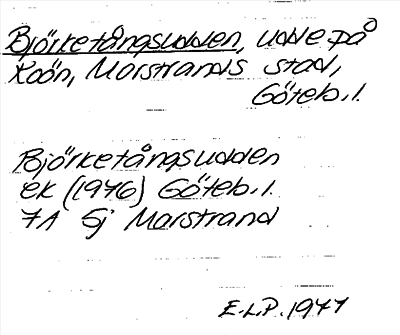 Björketångsudden, udde på
Koön, Marstrands stad,
Göteb. l.
Björketångsudden
ek (1976) Göteb. l.
7A Sj Marstrand
E.L.P. 1977